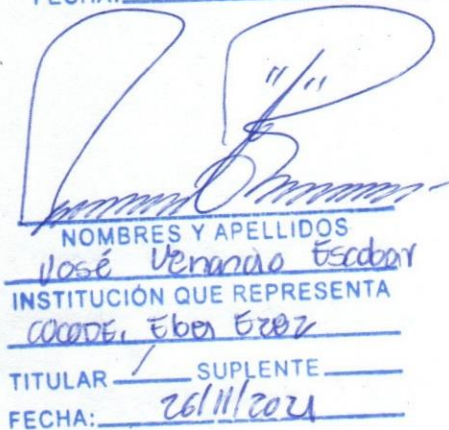 FECHA:
NOMBRES Y APELLIDOS
José Venancio Escobar
INSTITUCIÓN QUE REPRESENTA
COCODE, Eben Ezer
TITULAR / SUPLENTE
FECHA: 26/11/2021